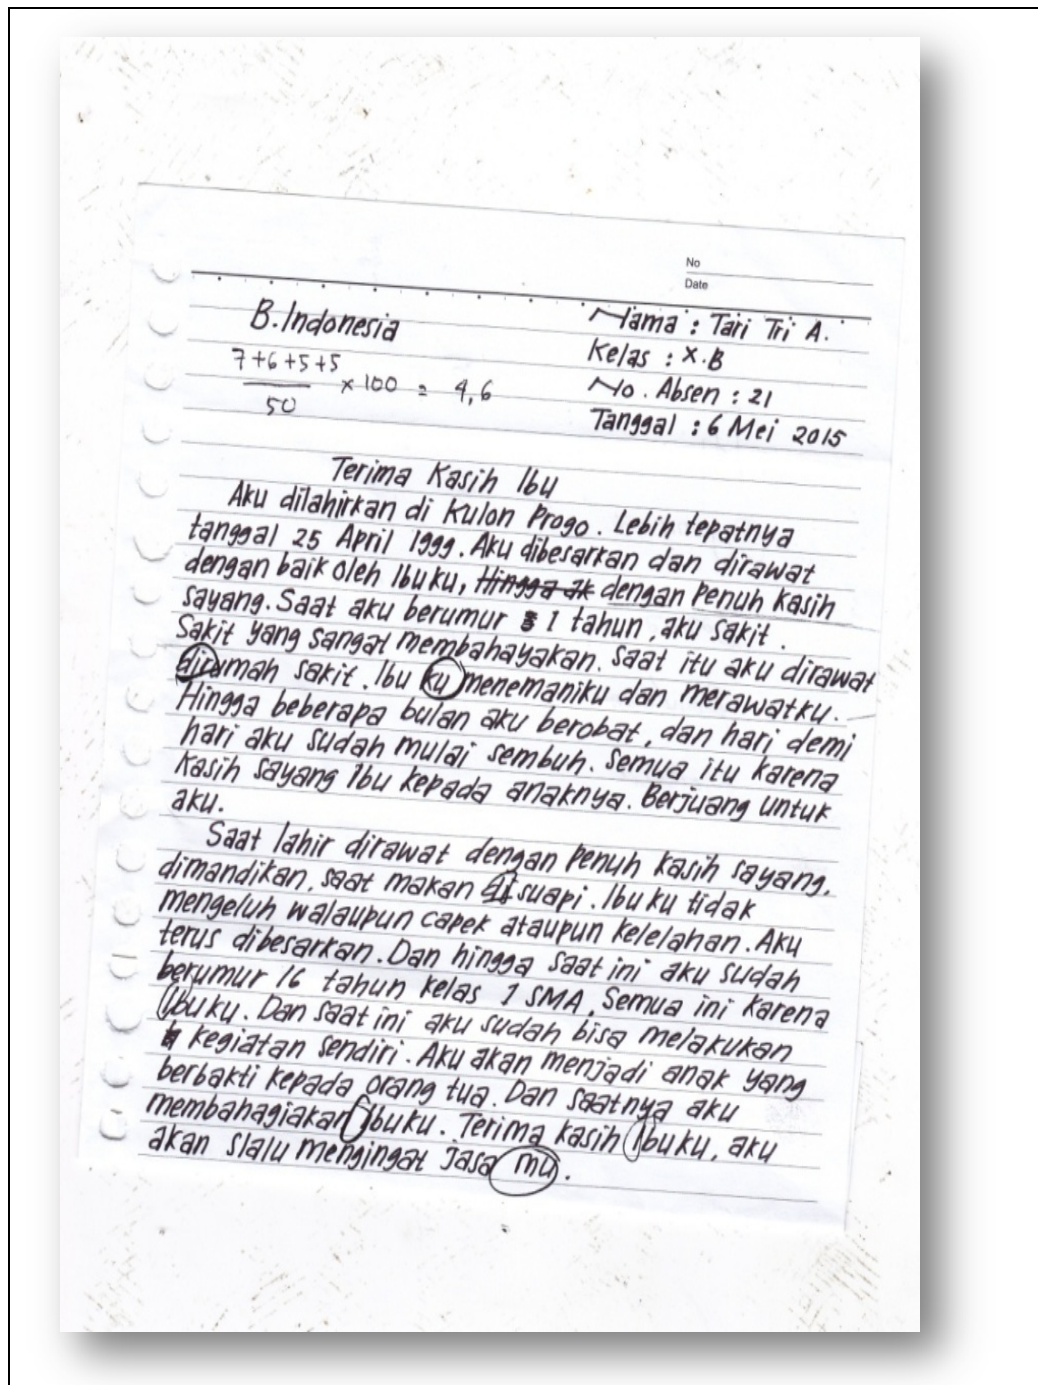 No
Date
B.Indonesia
Nama : Tari Tri A.
7+6+5+5
Kelas : X.B
50
x 100 = 4,6
No. Absen : 21
Tanggal : 6 Mei 2015
Terima Kasih Ibu
Aku dilahirkan di Kulon Progo. Lebih tepatnya
tanggal 25 April 1999. Aku dibesarkan dan dirawat
dengan baik oleh Ibuku, Hingga ak dengan penuh kasih
sayang. Saat aku berumur 1 tahun, aku sakit.
Sakit yang sangat membahayakan. Saat itu aku dirawat
dirumah sakit. Ibu ku menemaniku dan merawatku.
Hingga beberapa bulan aku berobat, dan hari demi
hari aku sudah mulai sembuh. Semua itu karena
kasih sayang Ibu kepada anaknya. Berjuang untuk
aku.
Saat lahir dirawat dengan penuh kasih sayang,
dimandikan, saat makan di suapi. Ibu ku tidak
mengeluh walaupun capek ataupun kelelahan. Aku
terus dibesarkan. Dan hingga saat ini aku sudah
berumur 16 tahun kelas 1 SMA. Semua ini karena
Ibuku. Dan saat ini aku sudah bisa melakukan
kegiatan sendiri. Aku akan menjadi anak yang
berbakti kepada orang tua. Dan saatnya aku
membahagiakan Ibuku. Terima kasih Ibuku, aku
akan slalu mengingat jasa mu.